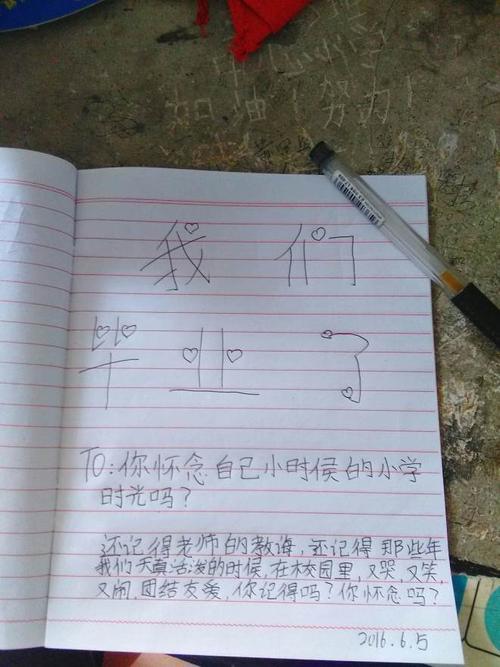 加油！努力！
我们
毕业了
TO:你怀念自己小时候的小学
时光吗？
还记得老师的教诲，还记得那些年
我们天真活泼的时候，在校园里，又哭，又笑，
又闹，团结友爱，你记得吗？你怀念吗？
2016.6.5